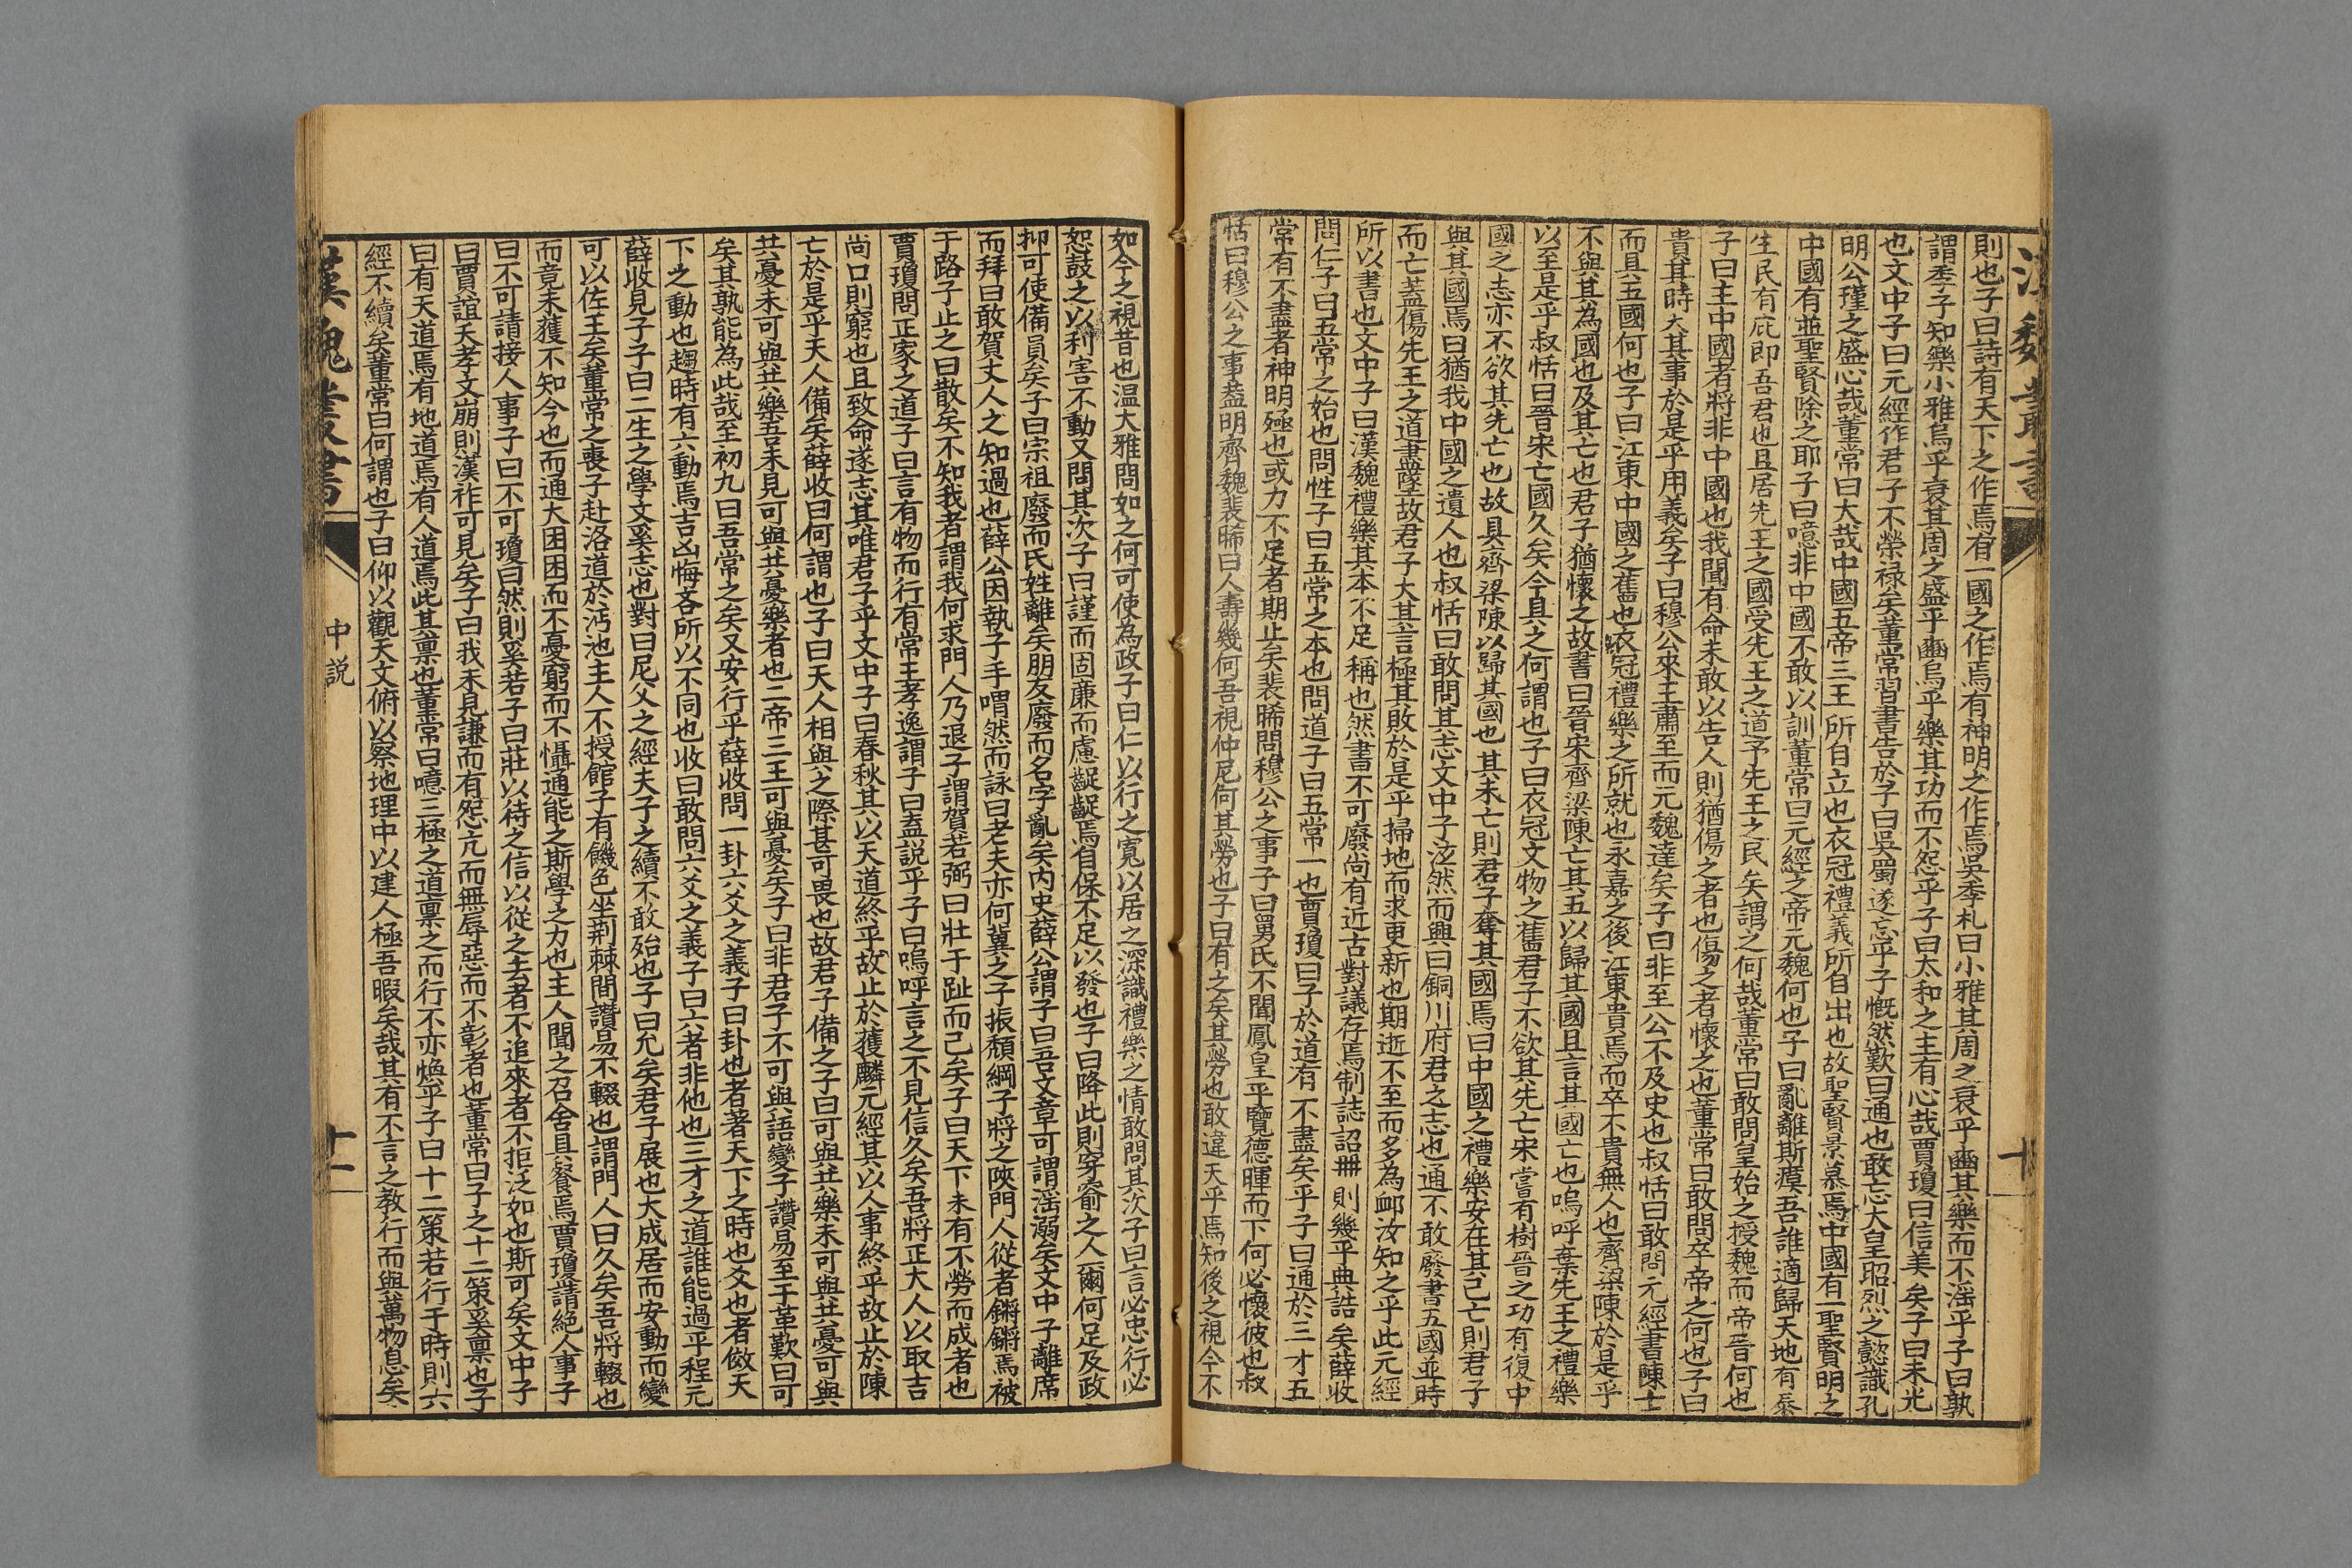 則也子曰詩有天下之作焉有一國之作焉有神明之作焉吳季札曰小雅其周之衰乎豳其樂而不淫乎子曰孰
謂季子知樂小雅烏乎衰其周之盛乎豳烏乎樂其功而不怨乎子曰太和之主有心哉賈瓊曰信美矣子曰未光
也文中子曰元經作君子不榮祿矣董常習書告於子曰吳蜀遂忘乎子慨然歎曰通也敢忘大皇昭烈之懿識孔
明公瑾之盛心哉董常曰大哉中國五帝三王所自立也衣冠禮義所自出也故聖賢景慕焉中國有一聖賢明之
中國有並聖賢除之耶子曰噫非中國不敢以訓董常曰元經之帝元魏何也子曰亂離斯瘼吾誰適歸天地有奉
生民有庇即吾君也且居先王之國受先王之道予先王之民矣謂之何哉董常曰敢問皇始之授魏而帝晉何也
子曰主中國者將非中國也我聞有命未敢以告人則猶傷之者也傷之者懷之也董常曰敢問卒帝之何也子曰
貴其時大其事於是乎用義矣子曰穆公來王肅至而元魏達矣子曰非至公不及史也叔恬曰敢問元經書陳亡
而具五國何也子曰江東中國之舊也衣冠禮樂之所就也永嘉之後江東貴焉而卒不貴無人也齊梁陳於是乎
不與其為國也及其亡也君子猶懷之故書曰晉宋齊梁陳亡其五以歸其國且言其國亡也嗚呼棄先王之禮樂
以至是乎叔恬曰晉宋亡國久矣今具之何謂也子曰衣冠文物之舊君子不欲其先亡宋嘗有樹晉之功有復中
國之志亦不欲其先亡也故具齊梁陳以歸其國也其未亡則君子奪其國焉曰中國之禮樂安在其已亡則君子
與其國焉曰猶我中國之遺人也叔恬曰敢問其志文中子泫然而興曰銅川府君之志也通不敢廢書五國並時
而亡蓋傷先王之道盡墜故君子大其言極其敗於是乎掃地而求更新也期逝不至而多為卹汝知之乎此元經
所以書也文中子曰漢魏禮樂其本不足稱也然書不可廢尚有近古對議存焉制誌詔冊則幾乎典誥矣薛收
問仁子曰五常之始也問性子曰五常之本也問道子曰五常一也賈瓊曰子於道有不盡矣乎子曰通於三才五
常有不盡者神明殛也或力不足者期止矣裴晞問穆公之事子曰舅氏不聞鳳皇乎覽德暉而下何必懷彼也叔
恬曰穆公之事蓋明齊魏裴晞曰人壽幾何吾視仲尼何其勞也子曰有之矣其勞也敢違天乎焉知後之視今不
如今之視昔也溫大雅問如之何可使為政子曰仁以行之寬以居之深識禮樂之情敢問其次子曰言必忠行必
恕鼓之以利害不動又問其次子曰謹而固廉而慮齪齪焉自保不足以發也子曰降此則穿窬之人爾何足及政
抑可使備員矣子曰宗祖廢而氏姓離矣朋友廢而名字亂矣內史薛公謂子曰吾文章可謂淫溺矣文中子離席
而拜曰敢賀丈人之知過也薛公因執子手喟然而詠曰老夫亦何冀之子振頹綱子將之陝門人從者鏘鏘焉被
于路子止之曰散矣不知我者謂我何求門人乃退子謂賀若弼曰壯于趾而已矣子曰天下未有不勞而成者也
賈瓊問正家之道子曰言有物而行有常王孝逸謂子曰盍說乎子曰嗚呼言之不見信久矣吾將正大人以取吉
尚口則窮也且致命遂志其唯君子乎文中子曰春秋其以天道終乎故止於獲麟元經其以人事終乎故止於陳
亡於是乎天人備矣薛收曰何謂也子曰天人相與之際甚可畏也故君子備之子曰可與共樂未可與共憂可與
共憂未可與共樂吾未見可與共憂樂者也二帝三王可與憂矣子曰非君子不可與語變子讚易至于革歎曰可
矣其孰能為此哉至初九曰吾常之矣又安行乎薛收問一卦六爻之義子曰卦也者著天下之時也爻也者傚天
下之動也趨時有六動焉吉凶悔吝所以不同也收曰敢問六爻之義子曰六者非他也三才之道誰能過乎程元
薛收見子子曰二生之學文奚志也對曰尼父之經夫子之續不敢殆也子曰允矣君子展也大成居而安動而變
可以佐王矣董常之喪子赴洛道於沔池主人不授館子有饑色坐荊棘間讚易不輟也謂門人曰久矣吾將輟也
而竟未獲不知今也而通大困困而不憂窮而不懾通能之斯學之力也主人聞之召舍具餐焉賈瓊請絕人事子
曰不可請接人事子曰不可瓊曰然則奚若子曰莊以待之信以從之去者不追來者不拒泛如也斯可矣文中子
曰賈誼夭孝文崩則漢祚可見矣子曰我未見謙而有怨亢而無辱惡而不彰者也董常曰子之十二策奚稟也子
曰有天道焉有地道焉有人道焉此其稟也董常曰噫三極之道稟之而行不亦煥乎子曰十二策若行于時則六
經不續矣董常曰何謂也子曰仰以觀天文俯以察地理中以建人極吾暇矣哉其有不言之教行而與萬物息矣
漢魏叢書
中說
十一